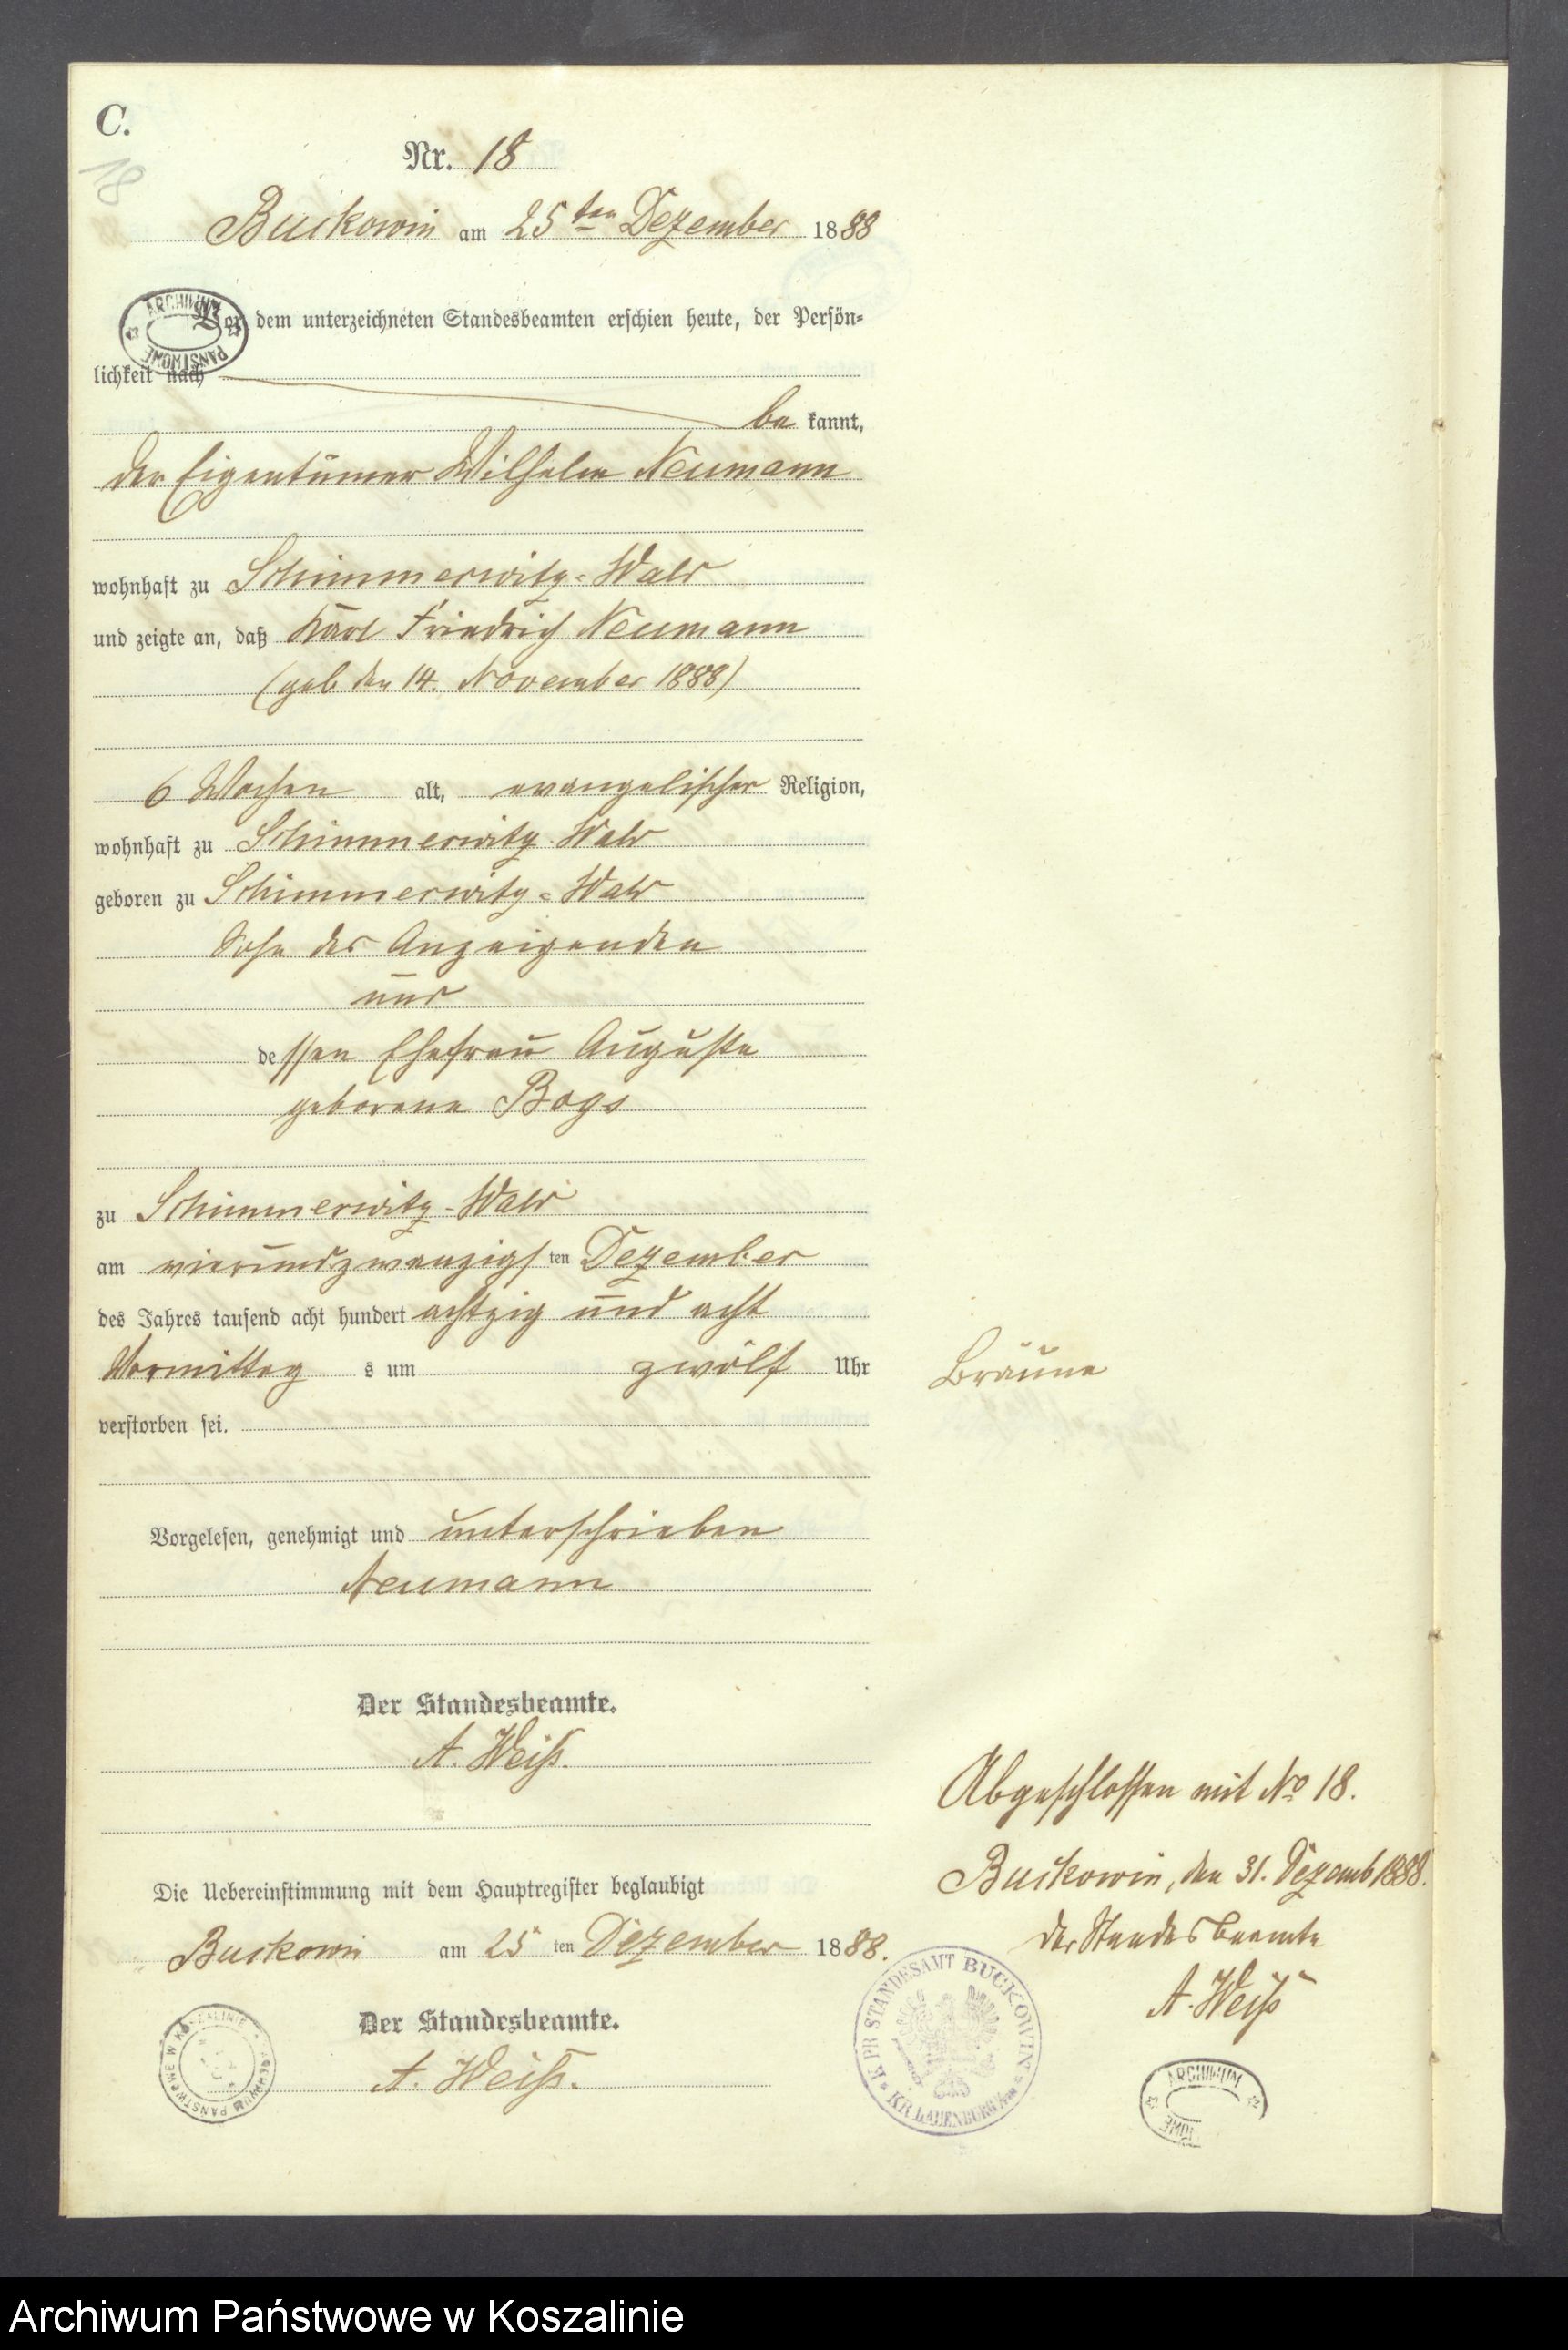 C.
18
Nr. 18
Buckowin am 25ten Dezember 1888
Vor dem unterzeichneten Standesbeamten erschien heute, der Persön-
lichkeit nach
be kannt,
der Eigentümer Wilhelm Neumann
wohnhaft zu Schimmerwitz-Wald
und zeigte an, daß Karl Friedrich Neumann
(geb den 14. November 1888)
6 Wochen alt, evangelischer Religion,
wohnhaft zu Schimmerwitz Wald
geboren zu Schimmerwitz-Wald
Sohn des Anzeigenden
und
dessen Ehefrau Auguste
geborene Bogs
zu Schimmerwitz-Wald
am vierundzwanzigsten Dezember
des Jahres tausend acht hundert achtzig und acht
Vormittag s um zwölf Uhr
verstorben sei.
Bräune
Vorgelesen, genehmigt und unterschrieben
Neumann
Der Standesbeamte.
A. Weiß.
Die Uebereinstimmung mit dem Hauptregister beglaubigt
Buckowin am 25 ten Dezember 1888.
Der Standesbeamte.
A. Weiß.
Abgeschlossen mit No 18.
Buckowin, den 31. Dezemb 1888.
Der Standesbeamte
A. Weiß
ARCHIWUM PAŃSTWOWE
K PR STANDESAMT BUCKOWIN
KR LAUENBURG
ARCHIWUM PAŃSTWOWE W KOSZALINIE
ARCHIWUM
Archiwum Państwowe w Koszalinie